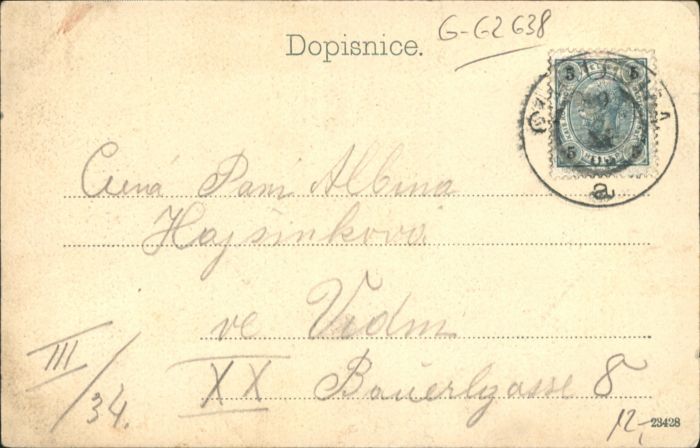 G-G2638
Dopisnice.
5 5
5 5
a
Ctná Paní Albina
Hajšínková
ve Vídni
XX Bäuerlgasse 8
III/34.
12,-
23428